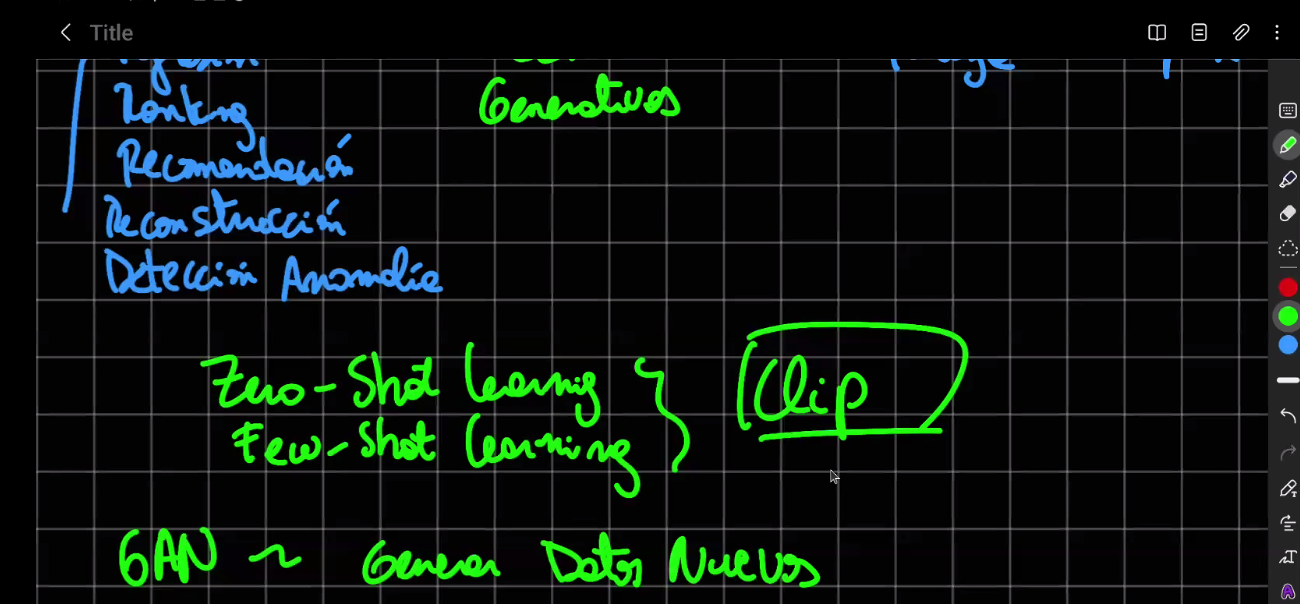 Title
Generativos
Ranking
Recomendación
Reconstrucción
Detección Anomalía
Zero-Shot Learnig
Few-Shot Learning
Clip
GAN ~ Generar Datos Nuevos